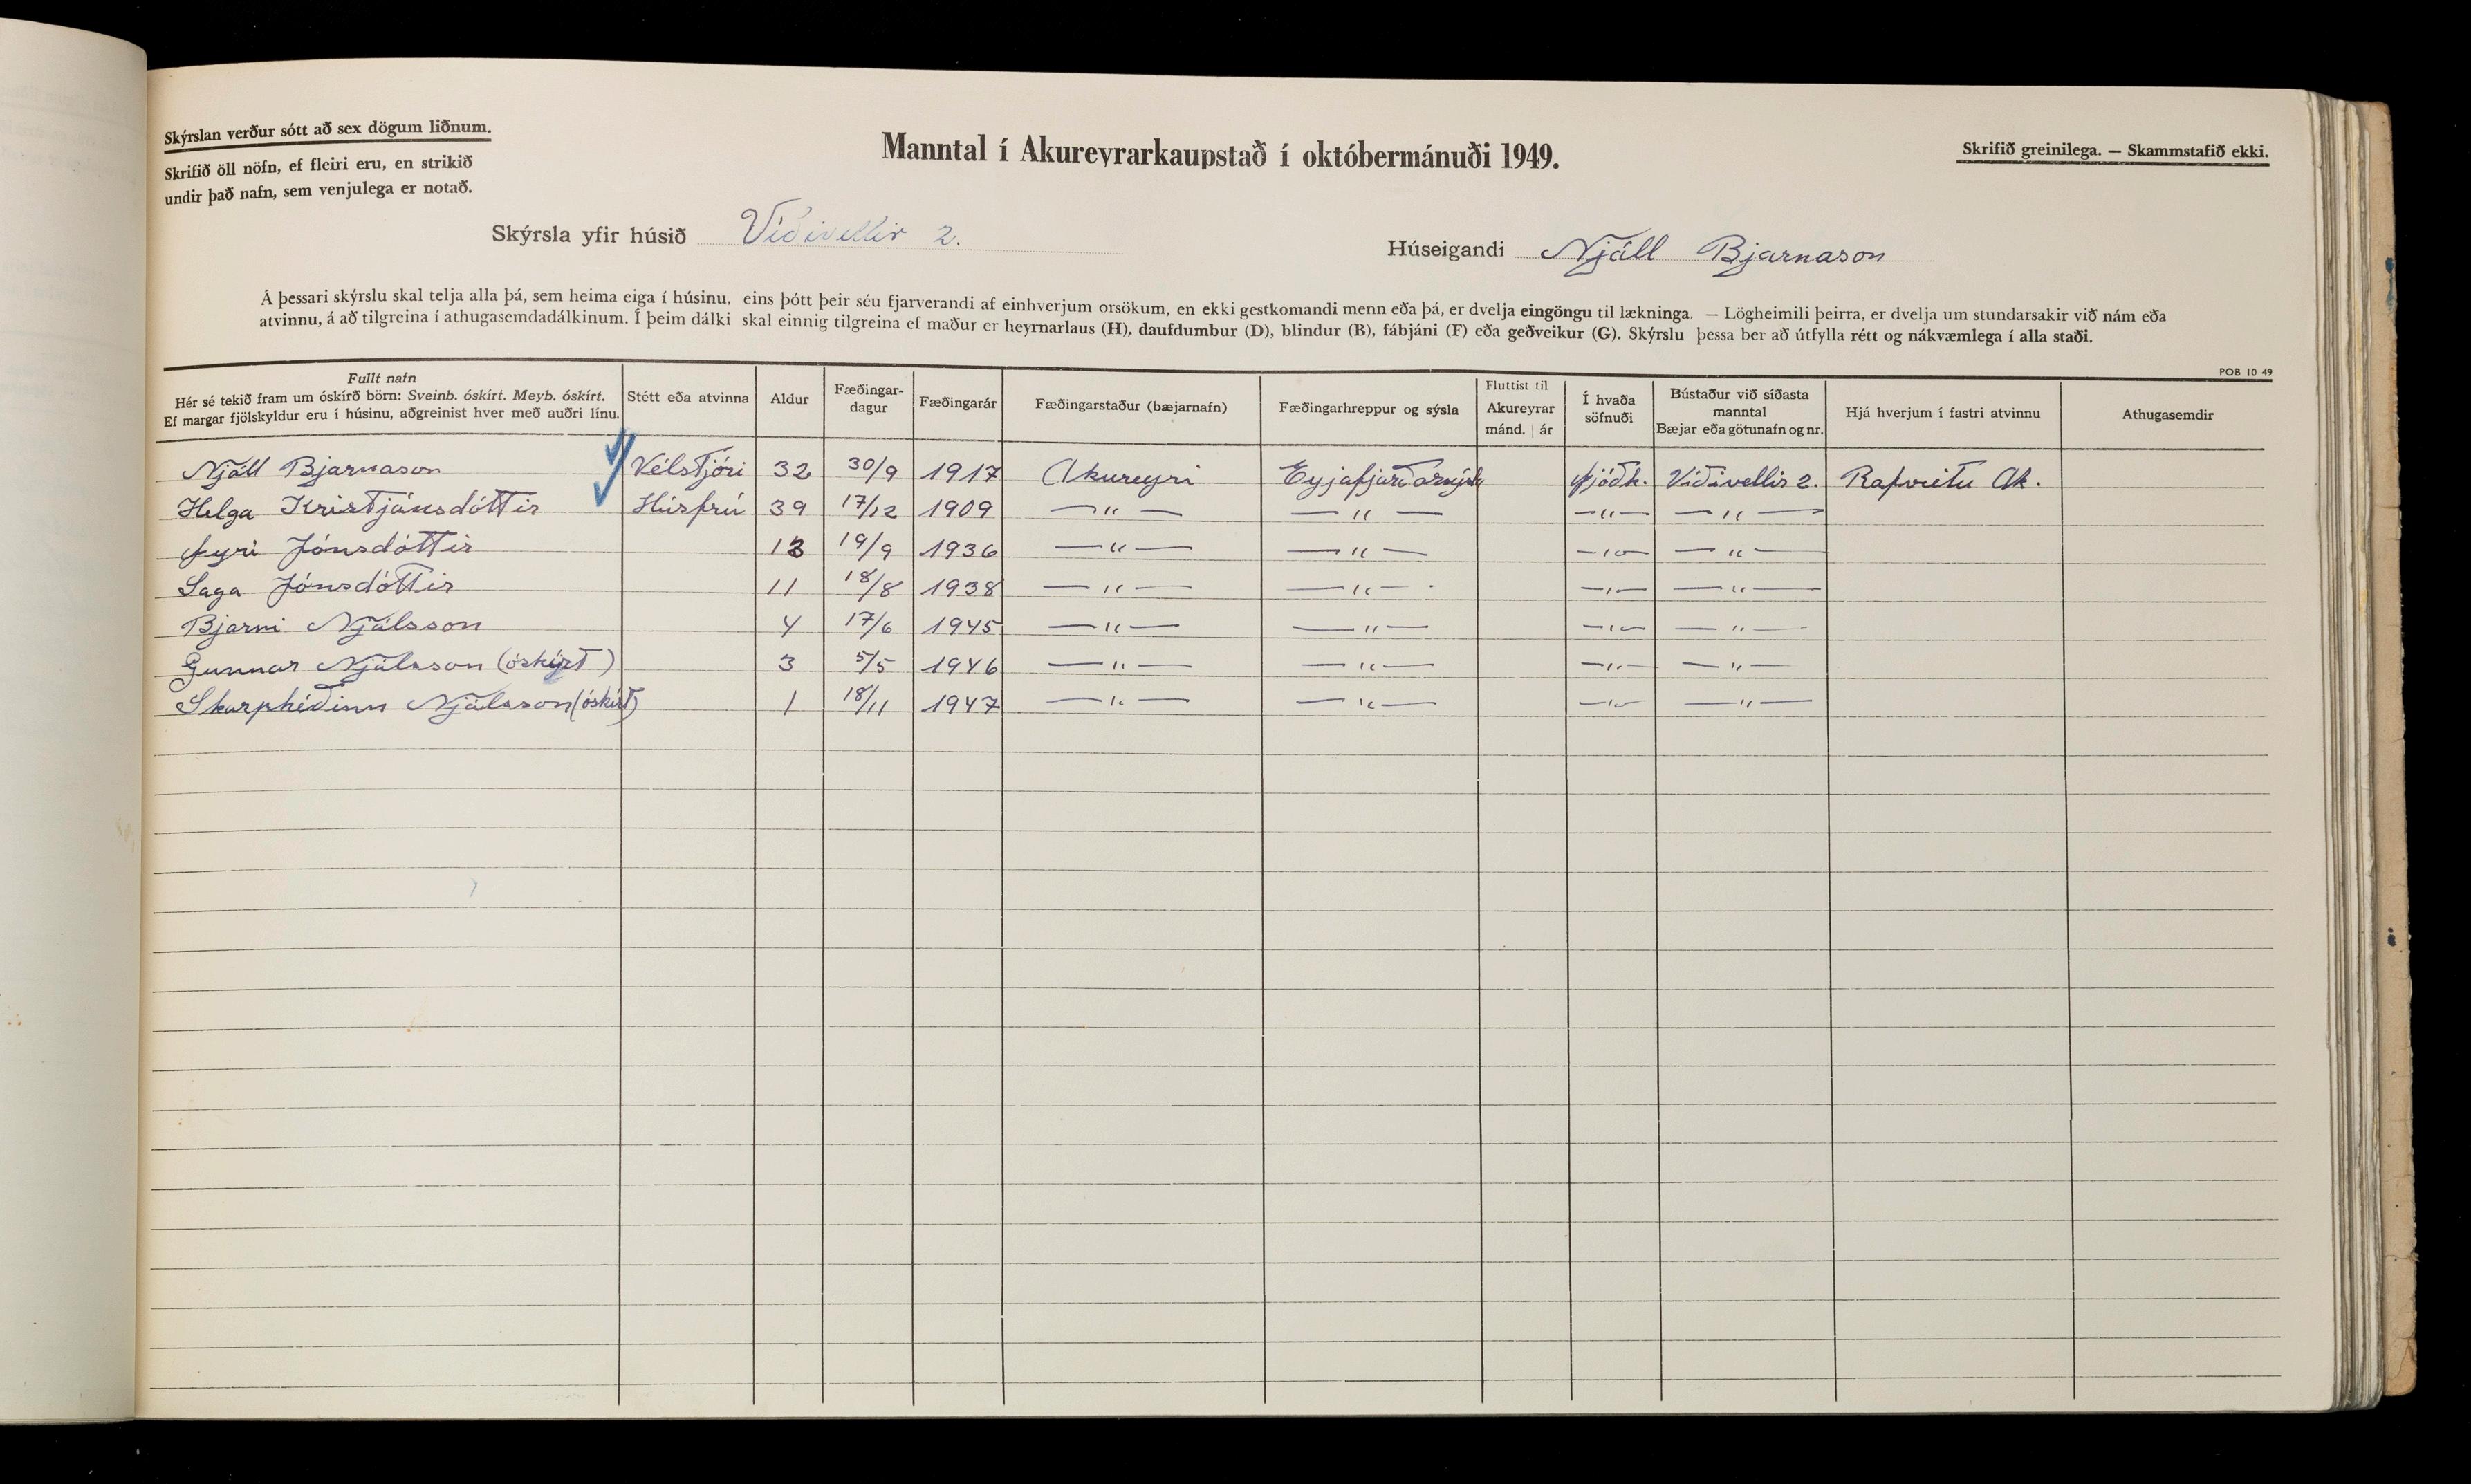 Skýrslan verður sótt að sex dögum liðnum.
Skrifið öll nöfn, ef fleiri eru, en strikið
undir það nafn, sem venjulega er notað.
Manntal í Akureyrarkaupstað í októbermánuði 1949.
Skrifið greinilega. — Skammstafið ekki.
Skýrsla yfir húsið Víðivellir 2.
Húseigandi Njáll Bjarnason
Á þessari skýrslu skal telja alla þá, sem heima eiga í húsinu, eins þótt þeir séu fjarverandi af einhverjum orsökum, en ekki gestkomandi menn eða þá, er dvelja eingöngu til lækninga. — Lögheimili þeirra, er dvelja um stundarsakir við nám eða
atvinnu, á að tilgreina í athugasemdadálkinum. Í þeim dálki skal einnig tilgreina ef maður er heyrnarlaus (H), daufdumbur (D), blindur (B), fábjáni (F) eða geðveikur (G). Skýrslu þessa ber að útfylla rétt og nákvæmlega í alla staði.
POB 10 49
Fullt nafn
Hér sé tekið fram um óskírð börn: Sveinb. óskírt. Meyb. óskírt.
Ef margar fjölskyldur eru í húsinu, aðgreinist hver með auðri línu.
Stétt eða atvinna
Aldur
Fæðingar-
dagur
Fæðingarár
Fæðingarstaður (bæjarnafn)
Fæðingarhreppur og sýsla
Fluttist til
Akureyrar
mánd. | ár
Í hvaða
söfnuði
Bústaður við síðasta
manntal
Bæjar eða götunafn og nr.
Hjá hverjum í fastri atvinnu
Athugasemdir
Njáll Bjarnason Vélstjóri 32 30/9 1917 Akureyri Eyjafjarðarsýsla þjóðk. Víðivellir 2. Rafveitu Ak.
Helga Kristjánsdóttir Húsfrú 39 17/12 1909 — " — — " — — " — — " —
Þyri Jónsdóttir 13 19/9 1936 — " — — " — — " — — " —
Saga Jónsdóttir 11 18/8 1938 — " — — " — — " — — " —
Bjarni Njálsson 4 17/6 1945 — " — — " — — " — — " —
Gunnar Njálsson (óskírt) 3 5/5 1946 — " — — " — — " — — " —
Skarphéðinn Njálsson (óskírt) 1 18/11 1947 — " — — " — — " — — " —